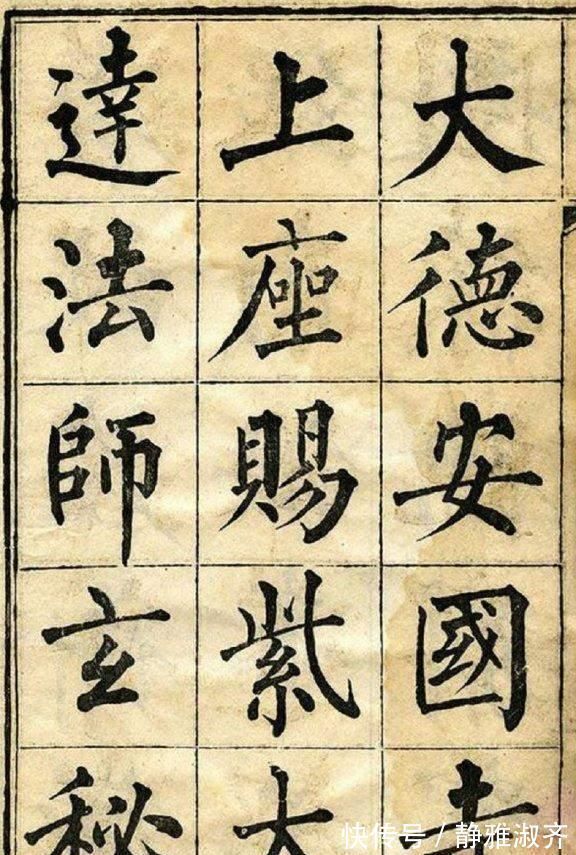 大德安國寺
上座賜紫大
達法師玄秘
快传号 / 静雅淑齐